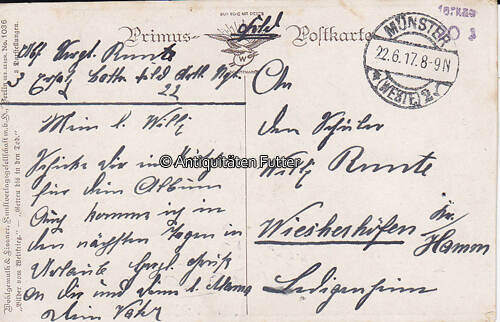 Primus- Postkarte
Feld
Abs. Vergl. Runte
Ersatz Batts. Feld Artl. Rgt.
22
Mein l. Willy
Schicke Dir ein Kärtchen
für dein Album
Auch komme ich in
den nächsten Tagen in
Urlaub herzl. Gruß
an Dich und deine l. Mama
Dein Vater
MÜNSTER
22.6.17. 8-9N
(WESTF.) 2
An
den Schüler
Willy Runte
Wiescherhöfen
Kr. Hamm
Ledigenheim
© Antiquitäten Futter
Wohlgemuth & Lissner, Kunstverlagsgesellschaft m.b.H., Berlin No. 1036
"Bilder vom Weltkrieg" - "Getreu bis in den Tod."